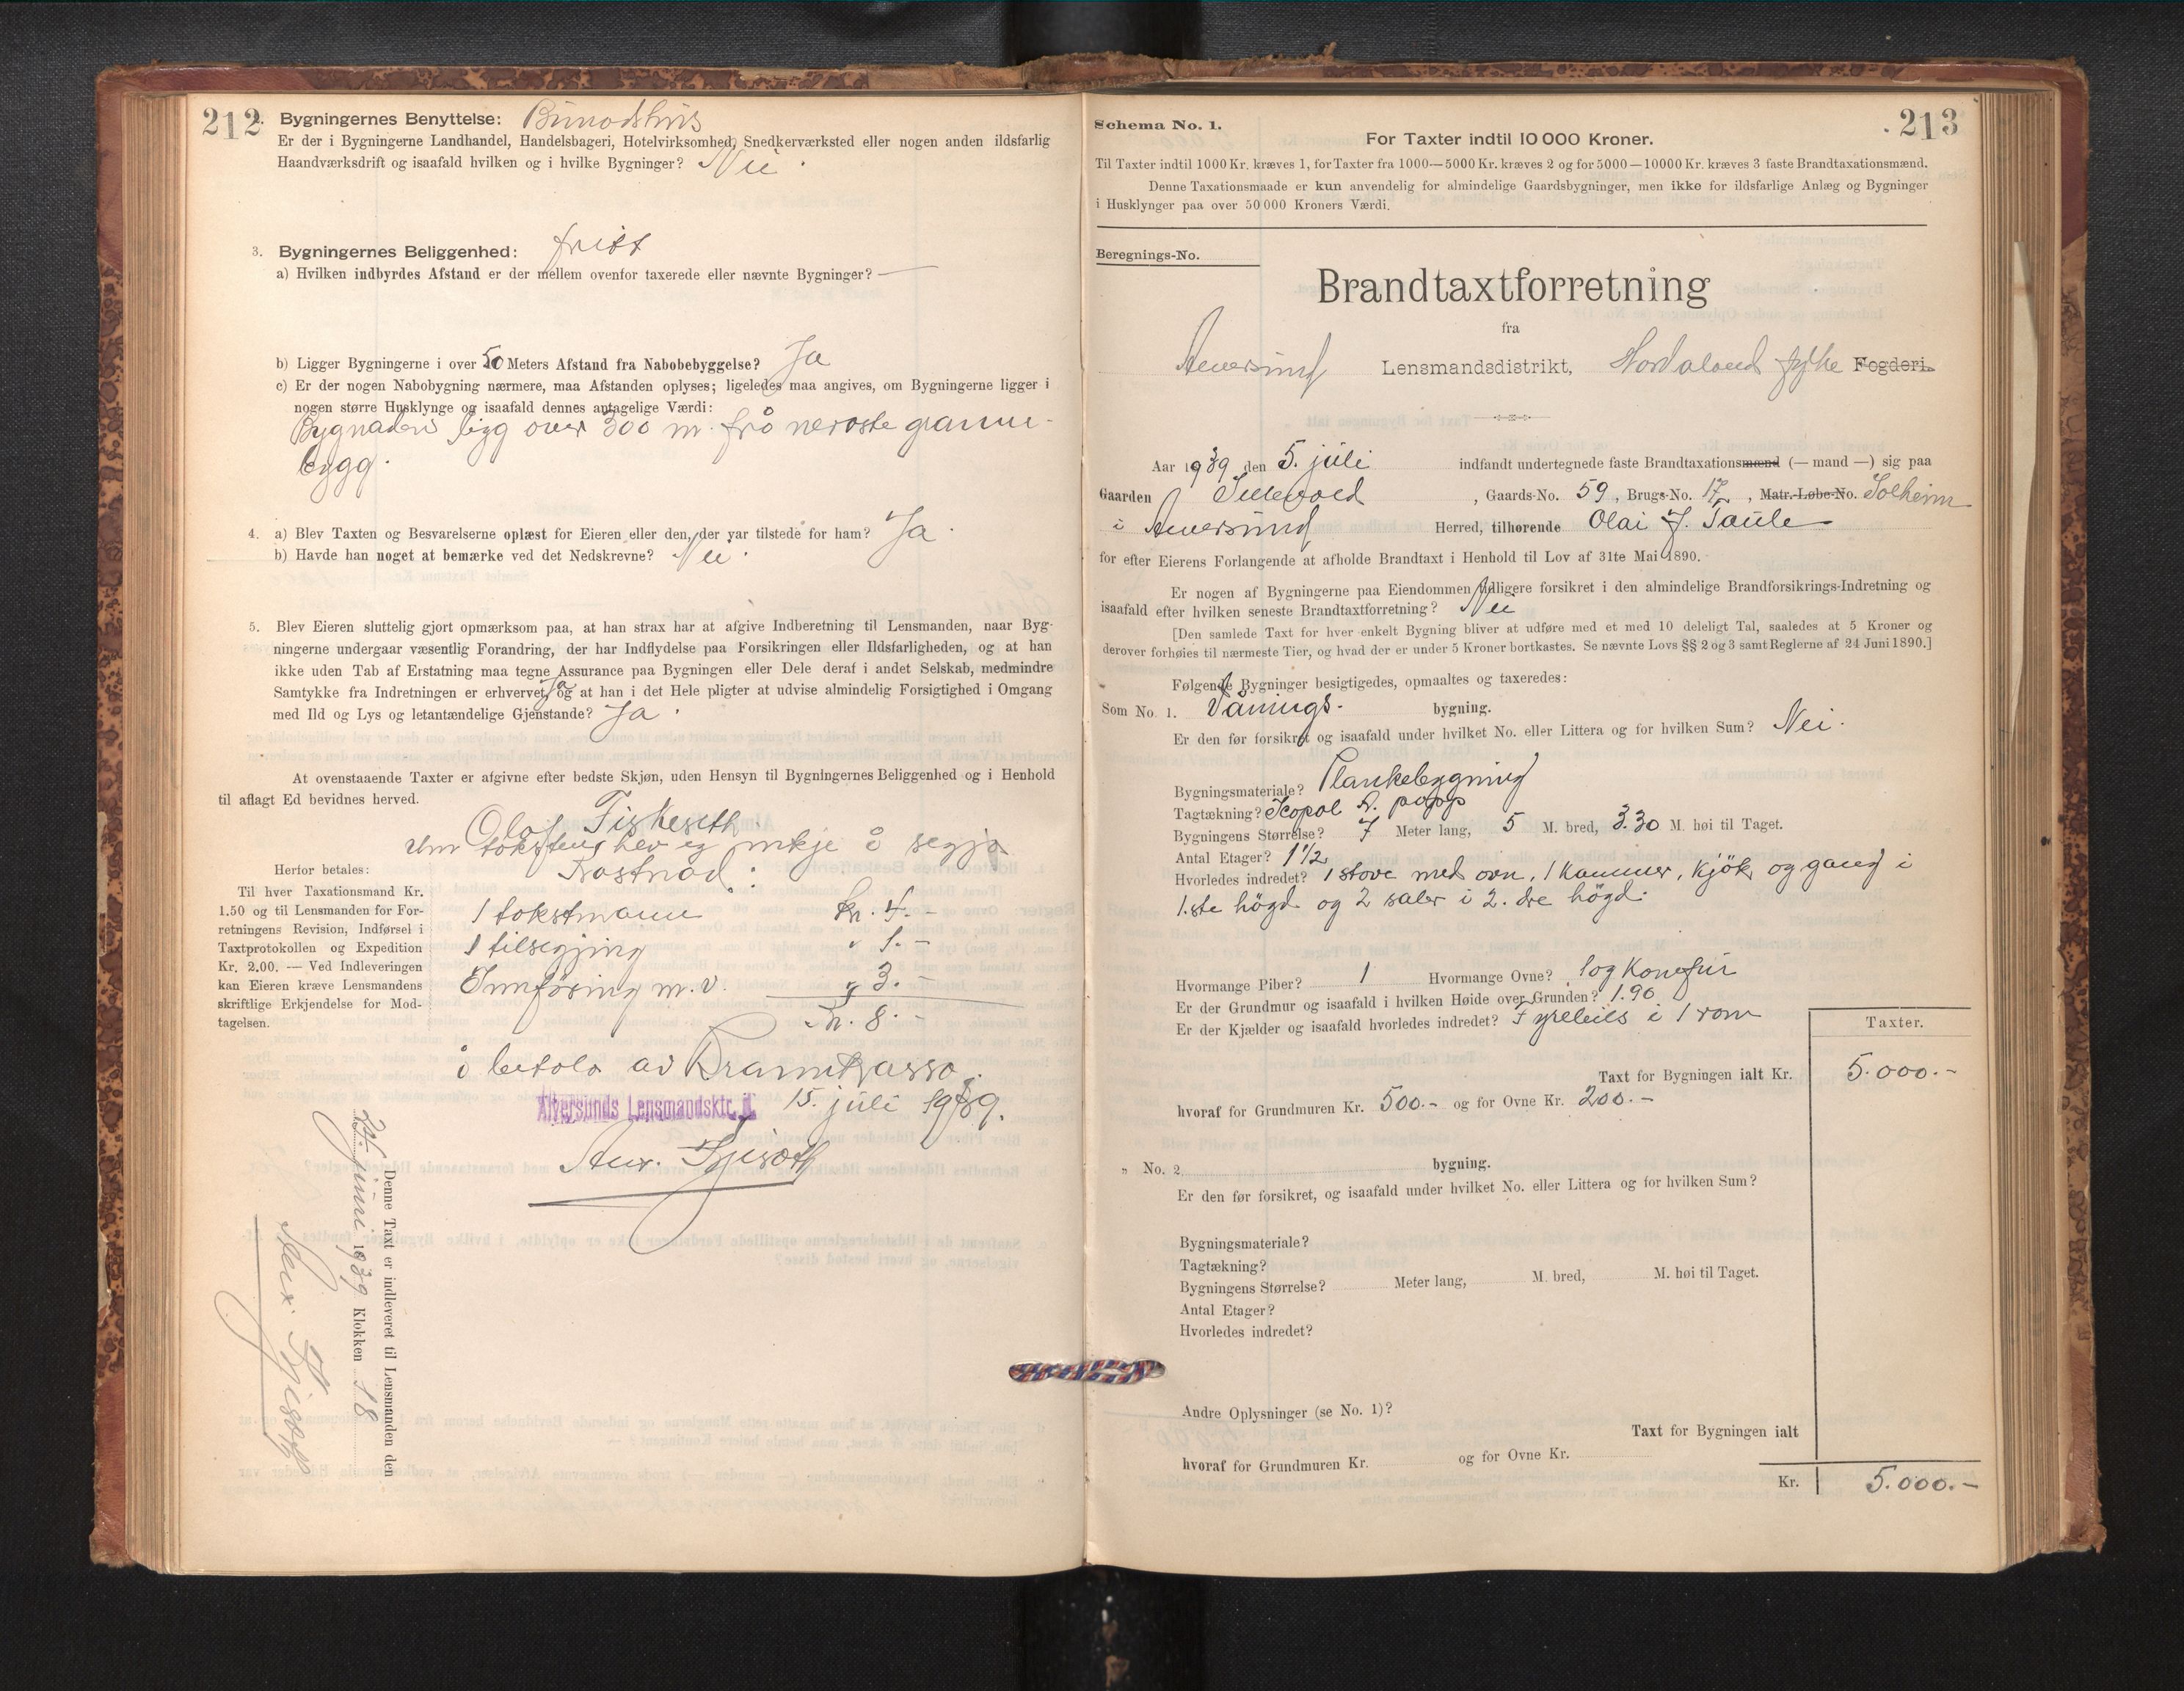 212
2. Bygningernes Benyttelse: Bunadshus
Er der i Bygningerne Landhandel, Handelsbageri, Hotelvirksomhed, Snedkerværksted eller nogen anden ildsfarlig
Haandværksdrift og isaafald hvilken og i hvilke Bygninger? Nei.
3. Bygningernes Beliggenhed: fritt
a) Hvilken indbyrdes Afstand er der mellem ovenfor taxerede eller nævnte Bygninger? —
b) Ligger Bygningerne i over 50 Meters Afstand fra Nabobebyggelse? Ja
c) Er der nogen Nabobygning nærmere, maa Afstanden oplyses; ligeledes maa angives, om Bygningerne ligger i
nogen større Husklynge og isaafald dennes antagelige Værdi:
Bygnaden ligg over 300 m. frå næraste granne-
bygg.
4. a) Blev Taxten og Besvarelserne oplæst for Eieren eller den, der var tilstede for ham? Ja.
b) Havde han noget at bemærke ved det Nedskrevne? Nei.
5. Blev Eieren sluttelig gjort opmærksom paa, at han strax har at afgive Indberetning til Lensmanden, naar Byg-
ningerne undergaar væsentlig Forandring, der har Indflydelse paa Forsikringen eller Ildsfarligheden, og at han
ikke uden Tab af Erstatning maa tegne Assurance paa Bygningen eller Dele deraf i andet Selskab, medmindre
Samtykke fra Indretningen er erhvervet, Ja og at han i det Hele pligter at udvise almindelig Forsigtighed i Omgang
med Ild og Lys og letantændelige Gjenstande? Ja.
At ovenstaaende Taxter er afgivne efter bedste Skjøn, uden Hensyn til Bygningernes Beliggenhed og i Henhold
til aflagt Ed bevidnes herved.
Olaf Fiskeseth.
Um taksten hev eg inkje å segja
Kostnad:
Herfor betales:
Til hver Taxationsmand Kr.
1.50 og til Lensmanden for For-
retningens Revision, Indførsel i
Taxtprotokollen og Expedition
Kr. 2.00. — Ved Indleveringen
kan Eieren kræve Lensmandens
skriftlige Erkjendelse for Mod-
tagelsen.
1 takstmann kr. 4.-
1 tilsegjing " 1.-
Innføring m. v. " 3.-
Kr. 8.-
å betala av Brannkassa.
Alversunds Lensmandsktr. d. 15. juli 1939.
Denne Taxt er indleveret til Lensmanden den
juni 1939 Klokken 18
213
Schema No. 1.
For Taxter indtil 10 000 Kroner.
Til Taxter indtil 1000 Kr. kræves 1, for Taxter fra 1000—5000 Kr. kræves 2 og for 5000—10000 Kr. kræves 3 faste Brandtaxationsmænd.
Denne Taxationsmaade er kun anvendelig for almindelige Gaardsbygninger, men ikke for ildsfarlige Anlæg og Bygninger
i Husklynger paa over 50 000 Kroners Værdi.
Beregnings-No.
Brandtaxtforretning
fra
Alversund Lensmandsdistrikt, Hordaland fylke Fogderi.
Aar 1939 den 5. juli indfandt undertegnede faste Brandtaxationsmænd (— mand —) sig paa
Gaarden , Gaards-No. 59, Brugs-No. 17, Matr.-Løbe-No. Solheim
i Alversund Herred, tilhørende Olai J. Taule
for efter Eierens Forlangende at afholde Brandtaxt i Henhold til Lov af 31te Mai 1890.
Er nogen af Bygningerne paa Eiendommen tidligere forsikret i den almindelige Brandforsikrings-Indretning og
isaafald efter hvilken seneste Brandtaxtforretning? Nei
[Den samlede Taxt for hver enkelt Bygning bliver at udføre med et med 10 deleligt Tal, saaledes at 5 Kroner og
derover forhøies til nærmeste Tier, og hvad der er under 5 Kroner bortkastes. Se nævnte Lovs §§ 2 og 3 samt Reglerne af 24 Juni 1890.]
Følgende Bygninger besigtigedes, opmaaltes og taxeredes:
Som No. 1. Vånings- bygning.
Er den før forsikret og isaafald under hvilket No. eller Littera og for hvilken Sum? Nei.
Bygningsmateriale? Plankebygning
Tagtækning? Icopal t. papp
Bygningens Størrelse? 7 Meter lang, 5 M. bred, 3.30 M. høi til Taget.
Antal Etager? 1½
Hvorledes indredet? 1 stove med ovn, 1 kammer, kjøk og gang i
1.ste högd og 2 saler i 2. dre högd.
Hvormange Piber? 1 Hvormange Ovne? 1 og komfur
Er der Grundmur og isaafald i hvilken Høide over Grunden? 1.90
Er der Kjælder og isaafald hvorledes indredet? Fyrelaus i 1 rom
Taxter.
Taxt for Bygningen ialt Kr. 5.000.-
hvoraf for Grundmuren Kr. 500.- og for Ovne Kr. 200.-
" No. 2 bygning.
Er den før forsikret, og isaafald under hvilket No. eller Littera og for hvilken Sum?
Bygningsmateriale?
Tagtækning?
Bygningens Størrelse? Meter lang, M. bred, M. høi til Taget.
Antal Etager?
Hvorledes indredet?
Andre Oplysninger (se No. 1)?
Taxt for Bygningen ialt
hvoraf for Grundmuren Kr. og for Ovne Kr.
Kr. 5.000.-